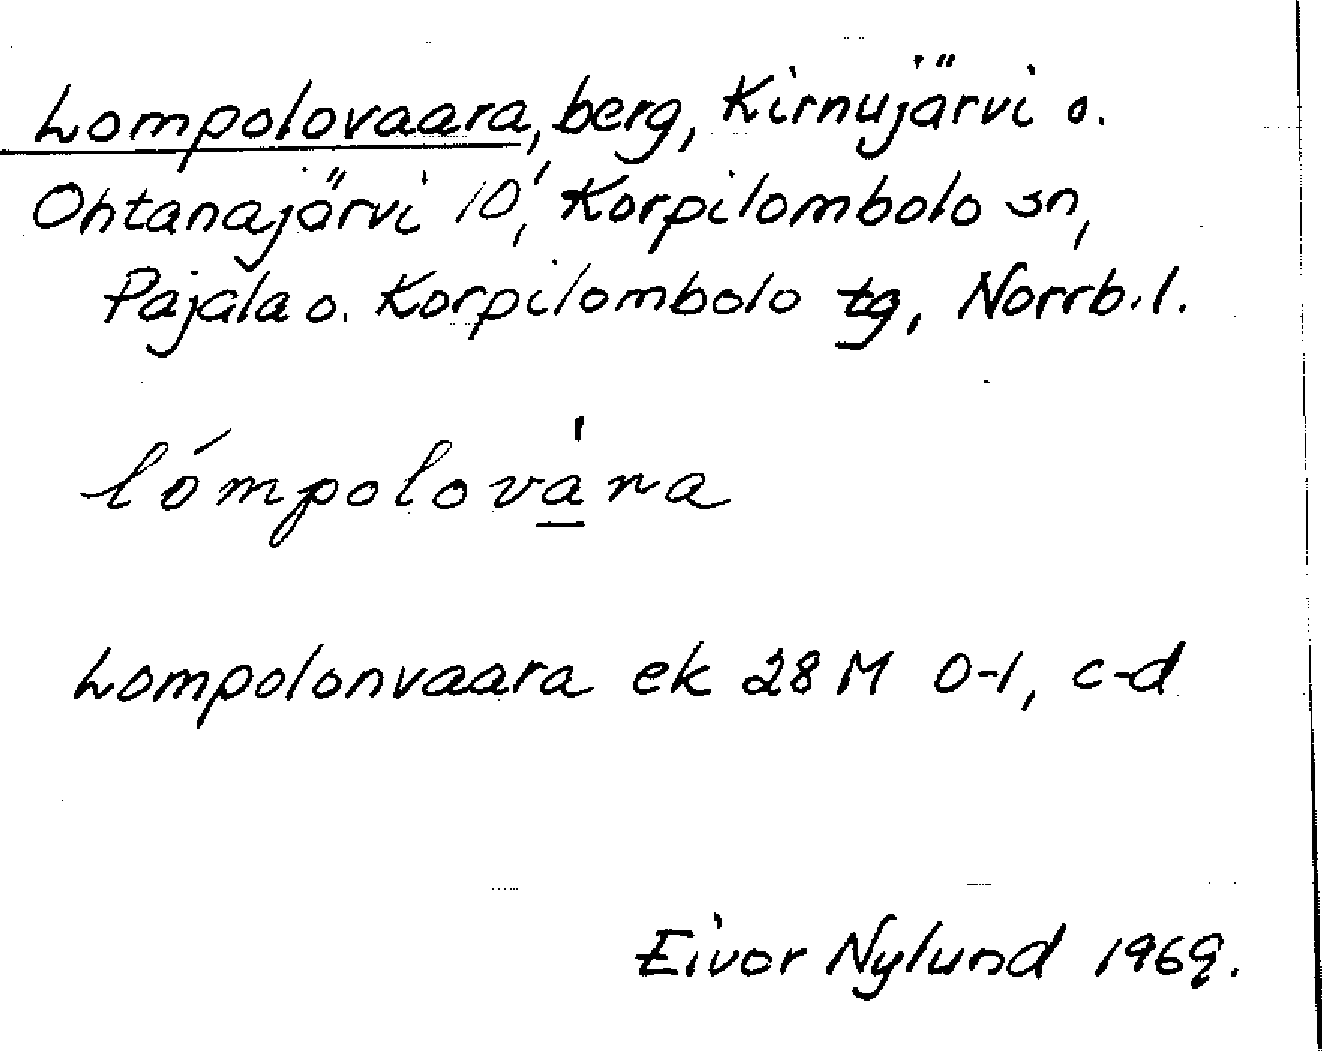 Lompolovaara, berg, Kirnujärvi o.
Ohtanajärvi 10', Korpilombolo sn,
Pajala o. Korpilombolo tg, Norrb. l.
lómpolovàra
Lompolonvaara ek 28 M 0-1, c-d
Eivor Nylund 1969.